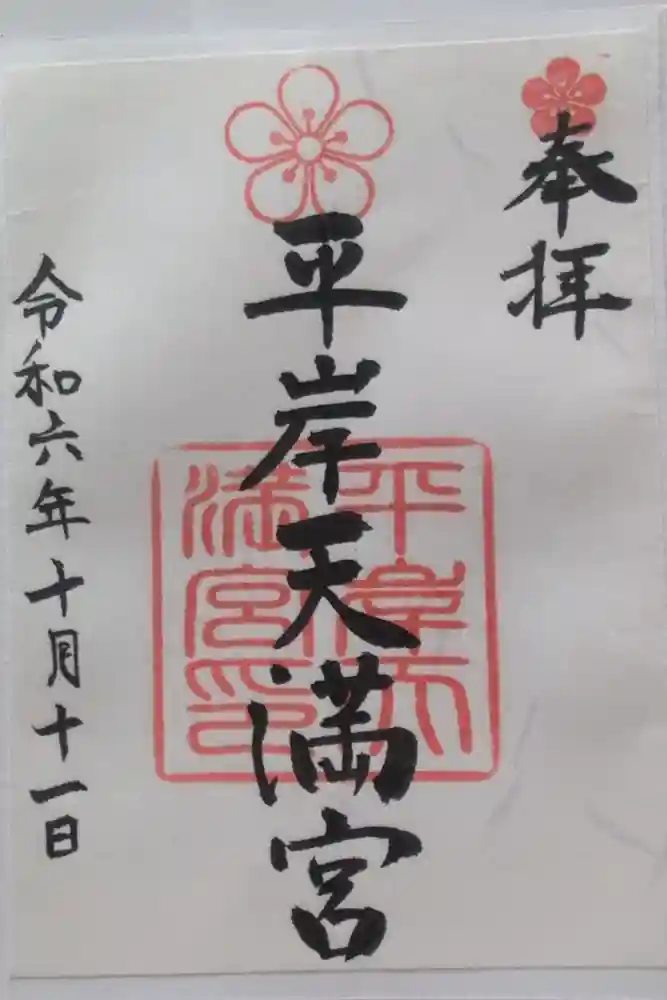 奉拝
平岸天満宮
平岸天
満宮印
令和六年十月十一日